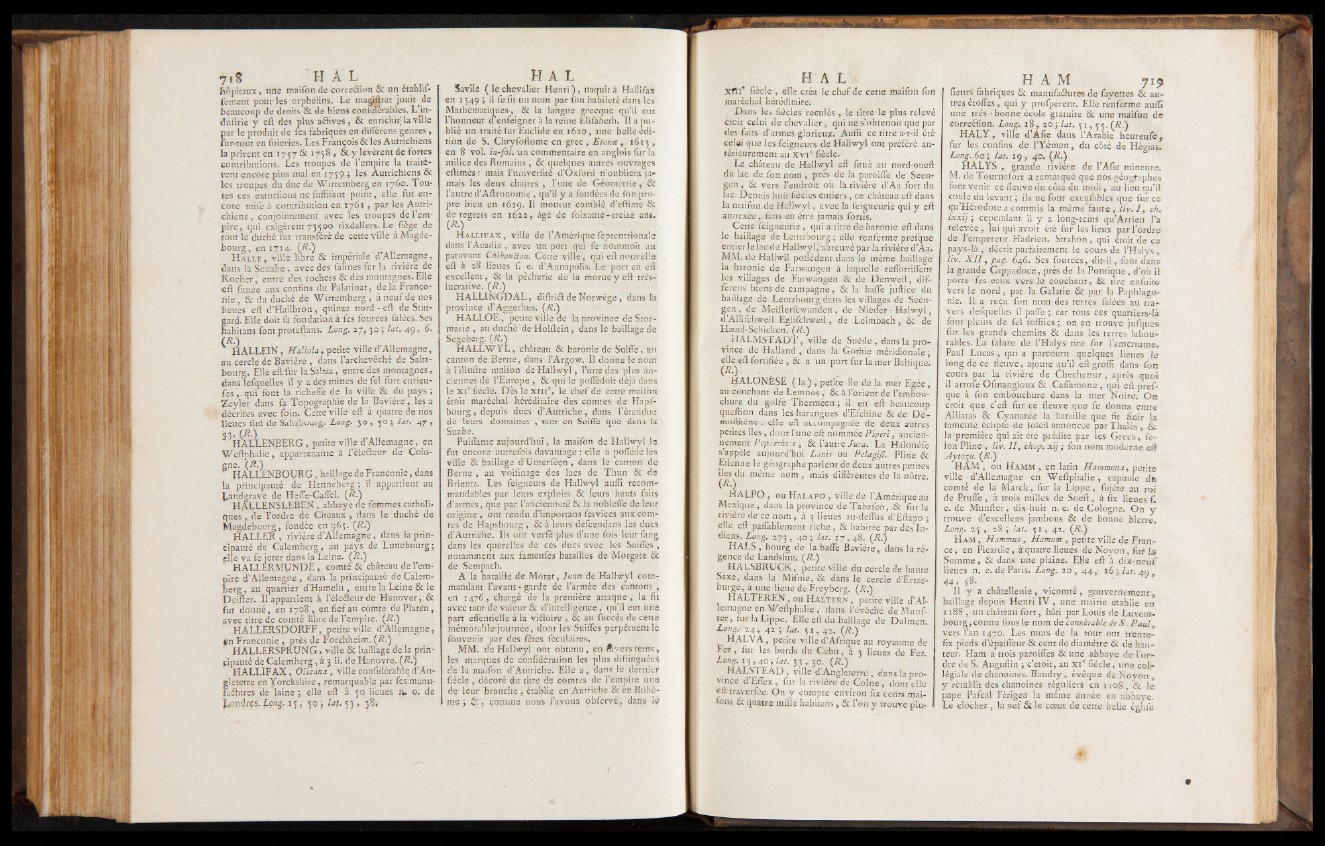 718 HAL
hôpitaux, une maison de correction & un établis-
sement pour les orphelins. Le magistrat jouit de
beaucoup de droits & de biens considérables. L'in-
dustrie y est des plus actives, & enrichit la ville
par le produit de ses fabriques en différens genres,
sur-tout en soieries. Les François & les Autrichiens
la prirent en 1757 & 1758, & y levèrent de fortes
contributions. Les troupes de l'empire la traitè-
rent encore plus mal en 1759; les Autrichiens &
les troupes du duc de Wirtemberg en 1760. Tou-
tes ces extorsions ne suffisant point, elle fut en-
core mise à contribution en 1761, par les Autri-
chiens, conjointement avec les troupes de l'em-
pire, qui exigèrent 73500 rixdallers. Le siège de
tout le duché fut transféré de cette ville à Magde-
bourg, en 1714. (R.)
HALLE, ville libre & impériale d'Allemagne,
dans la Souabe, avec des salines sur la rivière de
Kocher, entre des rochers & des montagnes. Elle
est située aux confins du Palatinat, de la Franco-
nie, & du duché de Wirtemberg, à neuf de nos
lieues est d'Hailbron, quinze nord-est de Stut-
gard. Elle doit sa fondation à ses sources salées. Ses
habitans sont protestans. Long. 27, 30; lat. 49, 6.
(R.)
HALLEIN, Haliola, petite ville d'Allemagne,
au cercle de Bavière, dans l'archevêché de Saltz-
bourg. Elle est sur la Salza, entre des montagnes,
dans lesquelles il y a des mines de sel fort curieu-
ses, qui font la richesse de la ville & du pays;
Zeyler dans sa Topographie de la Bavière, les a
décrites avec soin. Cette ville est à quatre de nos
lieues sud de Saltzbourg. Long. 30, 50; lat. 47,
33. (R.)
HALLENBERG, petite ville d'Allemagne, en
Westphalie, appartenante à l'électeur de Colo-
gne. (R.)
HALLENBOURG, bailliage de Franconie, dans
la principauté de Henneberg; il appartient au
Landgrave de Hesse-Cassel. (R.)
HALLENSLEBEN, abbaye de femmes catholi-
ques, de l'ordre de Cîteaux, dans le duché de
Magdebourg, fondée en 965. (R.)
HALLER, rivière d'Allemagne, dans la prin-
cipauté de Calemberg, au pays de Lunebourg;
elle va se jeter dans la Leine. (R.)
HALLERMUNDE, comté & château de l'em-
pire d'Allemagne, dans la principauté de Calem-
berg, au quartier d'Hameln, entre la Leine & le
Deister. Il appartient à l'électeur de Hanover, &
fut donné, en 1708, en fief au comte de Platen,
avec titre de comté libre de l'empire. (R.)
HALLERSDORFF, petite ville d'Allemagne,
en Franconie, près de Forchheim. (R.)
HALLERSPRUNG, ville & bailliage de la prin-
cipauté de Calemberg, à 3 li. de Hanovre. (R.)
HALLIFAX, Olicana, ville considérable d'An-
gleterre en Yorckshire, remarquable par ses manu-
factures de laine; elle est à 50 lieues n. o. de
Londres. Long. 15, 50; lat. 53, 38.
HAL
Savile (le chevalier Henri), naquit à Hallifax
en 1549; il se fit un nom par son habileté dans les
Mathématiques, & la langue grecque qu'il eut
l'honneur d'enseigner à la reine Elisabeth. Il a pu-
blié un traité sur Euclide en 1620, une belle édi-
tion de S. Chrysostome en grec, Etonæ, 1613,
en 8 vol. in-fol. un commentaire en anglois sur la
milice des Romains, & quelques autres ouvrages
estimés: mais l'université d'Oxford n'oubliera ja-
mais les deux chaires, l'une de Géométrie, &
l'autre d'Astronomie, qu'il y a fondées de son pro-
pre bien en 1619. Il mourut comblé d'estime &
de regrets en 1622, âgé de soixante-treize ans.
(R.)
HALLIFAX, ville de l'Amérique septentrionale
dans l'Acadie, avec un port qui se nommoit au
paravant Chibouctou. Cette ville, qui est nouvelle
est à 28 lieues s. e. d'Annapolis. Le port en est
excellent, & la pêcherie de la morue y est très-
lucrative. (R.)
HALLINGDAL, district de Norwège, dans la
province d'Aggerhus. (R.)
HALLOE, petite ville de la province de Stor-
marie, au duché de Holstein, dans le bailliage de
Segeberg. (R.)
HALLWYL, château & baronie de Suisse, au
canton de Berne, dans l'Argow. Il donne le nom
à l'illustre maison de Hallwyl, l'une des plus an-
ciennes de l'Europe, & qui le possédoit déjà dans
le XIe siècle. Dès le XIIIe, le chef de cette maison
étoit maréchal héréditaire des comtes de Hapf-
bourg, depuis ducs d'Autriche, dans l'étendue
de leurs domaines, tant en Suisse que dans la
Suabe.
Puissante aujourd'hui, la maison de Hallwyl le
fut encore autrefois davantage: elle a possédé les
ville & bailliage d'Unterseen, dans le canton de
Berne, au voisinage des lacs de Thun & de
Brientz. Les seigneurs de Hallwyl aussi recom-
mandables par leurs exploits & leurs hauts faits
d'armes, que par l'ancienneté & la noblesse de leur
origine, ont rendu d'importans services aux com-
tes de Hapsbourg, & à leurs descendans les ducs
d'Autriche. Ils ont versé plus d'une fois leur sang
dans les querelles de ces ducs avec les Suisses,
notamment aux fameuses batailles de Morgate &
de Sempach.
A la bataille de Morat, Jean de Hallwyl com-
mandant l'avant-garde de l'armée des cantons,
en 1476, chargé de la première attaque, la fit
avec tant de valeur & d'intelligence, qu'il eut une
part essentielle à la victoire, & au succès de cette
mémorable journée, dont les Suisses perpétuent le
souvenir par des fêtes séculaires.
MM. de Hallwyl ont obtenu, en divers tems,
les marques de considération les plus distinguées
de la maison d'Autriche. Elle a, dans le dernier
siècle, décoré du titre de comtes de l'empire une
de leur branche, établie en Autriche & en Bohê-
me; &, comme nous l'avons observé, dans le
HAL
XIIIe siècle, elle créa le chef de cette maison son
maréchal héréditaire.
Dans les siècles reculés, le titre le plus relevé
étoit celui de chevalier, qui ne s'obtenoit que par
des faits d'armes glorieux. Aussi ce titre a-t-il été
celui que les seigneurs de Hallwyl ont préféré an-
térieurement au XVIe siècle.
Le château de Hallwyl est situé au nord-ouest
du lac de son nom, près de la paroisse de Seen-
gen, & vers l'endroit où la rivière d'Aa sort du
lac. Depuis huit siècles entiers, ce château est dans
la maison de Hallwyl, avec la seigneurie qui y est
annexée, sans en être jamais sortis.
Cette seigneurie, qui a titre de baronie est dans
le bailliage de Lentzbourg; elle renferme presque
entier le lac de Hallwyl, abreuvé par la rivière d'Aa.
MM. de Hallwil possèdent dans le même bailliage
la baronie de Farwangen à laquelle ressortissent
les villages de Farwangen & de Denweil, dif-
férens biens de campagne, & la basse justice du
bailliage de Lentzbourg dans les villages de Seen-
gen, de Meisterschwanden, de Nieder-Halwyl,
d'Allischweil Egischweil, de Leimbach, & de
Hænd-Schicken. (R.)
HALMSTADT, ville de Suède, dans la pro-
vince de Halland, dans la Gothie méridionale;
elle est fortifiée, & a un port sur la mer Baltique.
(R.)
HALONÈSE (la), petite île de la mer Egée,
au couchant de Lemnos, & à l'orient de l'embou-
chure du golfe Thermeen; il en est beaucoup
question dans les harangues d'Eschine & de Dé-
mosthène: elle est accompagnée de deux autres
petites îles, dont l'une est nommée Piperi, ancien-
nement Peparrhete, & l'autre Jura. La Halonèse
s'appèle aujourd'hui Lanis ou Pelagisi. Pline &
Etienne le géographe parlent de deux autres petites
îles du même nom, mais différentes de la nôtre.
(R.)
HALPO, ou HALAPO, ville de l'Amérique au
Mexique, dans la province de Tabasco, & sur la
rivière de ce nom, à 3 lieues au-dessus d'Estapo;
elle est passablement riche, & habitée par des In-
diens. Long. 273, 40; lat. 17, 48. (R.)
HALS, bourg de la basse Bavière, dans la ré-
gence de Landshut. (R.)
HALSBRUCK, petite ville du cercle de haute
Saxe, dans la Misnie, & dans le cercle d'Ertze-
burge, à une lieue de Freyberg. (R.)
HALTEREN, ou HALTERN, petite ville d'Al-
lemagne en Westphalie, dans l'évêché de Munf-
ter, sur la Lippe. Elle est du bailliage de Dulmen.
Long. 24, 42; lat. 51, 42. (R.)
HALVA, petite ville d'Afrique au royaume de
Fez, sur les bords du Cébu, à 3 lieues de Fez.
Long. 13, 40; lat. 33, 30. (R.)
HALSTEAD, ville d'Angleterre, dans la pro-
vince d'Essex, sur la rivière de Colne, dont elle
est traversée. On y compte environ six cents mai-
sons & quatre mille habitans, & l'on y trouve plu-
HAM 719
sieurs fabriques & manufactures de fayettes & au-
tres étoffes, qui y prospèrent. Elle renferme aussi
une très-bonne école gratuite & une maison de
correction. Long. 18, 20; lat. 51, 55. (R.)
HALY, ville d'Asie dans l'Arabie heureuse,
sur les confins de l'Yémen, du côté de Hégias.
Long. 60; lat. 19, 40. (R.)
HALYS, grande rivière de l'Asie mineure.
M. de Tournefort a remarqué que nos géographes
font venir ce fleuve du côté du midi, au lieu qu'il
coule du levant; ils ne sont excusables que sur ce
qu'Hérodote a commis la même faute, liv. I, ch.
lxxij; cependant il y a long-tems qu'Arrien l'a
relevée, lui qui avoit été sur les lieux par l'ordre
de l'empereur Hadrien. Strabon, qui étoit de ce
pays-là, décrit parfaitement le cours de l'Halys,
liv. XII, pag. 646. Ses sources, dit-il, sont dans
la grande Cappadoce, près de la Pontique, d'où il
porte ses eaux vers le couchant, & tire ensuite
vers le nord, par la Galatie & par la Paphlago-
nie. Il a reçu son nom des terres salées au tra-
vers desquelles il passe; car tous ces quartiers-là
sont pleins de sel fossiles; on en trouve jusques
sur les grands chemins & dans les terres labou-
rables. La salure de l'Halys tire sur l'amertume.
Paul Lucas, qui a parcouru quelques lieues le
long de ce fleuve, ajoute qu'il est grossi dans son
cours par la rivière de Chechenur, après quoi
il arrose Osmangioux & Cassemone, qui est pres-
que à son embouchure dans la mer Noire. On
croit que c'est sur ce fleuve que se donna entre
Alliatas & Cyanarée la bataille que fit finir la
fameuse éclipse de soleil annoncée par Thalès, &
la première qui ait été prédite par les Grecs, se-
lon Pline, liv. II, chap. xij; son nom moderne est
Aytozu. (R.)
HAM, ou HAMM, en latin Hammona, petite
ville d'Allemagne en Westphalie, capitale du
comté de la Marck, sur la Lippe, sujète au roi
de Prusse, à trois milles de Soest, à six lieues s.
e. de Munster, dix-huit n. e. de Cologne. On y
trouve d'excellens jambons & de bonne bierre.
Long. 25, 28; lat. 51, 42. (R.)
HAM, Hammus, Hamum, petite ville de Fran-
ce, en Picardie, à quatre lieues de Noyon, sur la
Somme, & dans une plaine. Elle est à dix-neuf
lieues n. e. de Paris. Long. 20, 44, 16; lat. 49,
44, 58.
Il y a châtellenie, vicomté, gouvernement,
bailliage depuis Henri IV, une mairie établie en
1188, un château fort, bâti par Louis de Luxem-
bourg, connu sous le nom de connétable de S. Paul,
vers l'an 1470. Les murs de la tour ont trente-
six pieds d'épaisseur & cent de diamètre & de hau-
teur. Ham a trois paroisses & une abbaye de l'or-
dre de S. Augustin, c'étoit, au XIe siècle, une col-
légiale de chanoines. Baudry, évêque de Noyon,
y rétablit des chanoines réguliers en 1108, & le
pape Pascal l'érigea la même année en abbaye.
Le clocher, la nef & le cœur de cette belle église